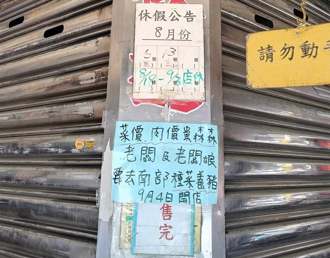 休假公告
8月份
請勿動手
菜價肉價貴森森
老闆及老闆娘
要去南部種菜養豬
9月4日開店
售完